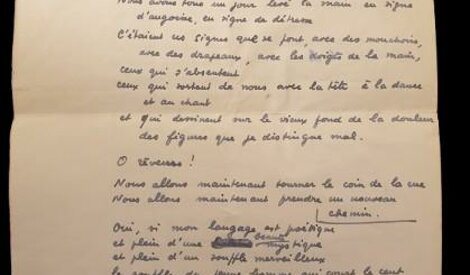 Nous avons tous un jour levé la main en signe
d'angoisse, en signe de détresse
C'étaient ces signes que se font avec des mouchoirs,
avec des drapeaux, avec les doigts de la main,
ceux qui s'absentent
ceux qui sortent de nous avec la tête à la danse
et au chant
et qui dessinent sur le vieux fond de la douleur
des figures que je distingue mal.
O rêveuses !
Nous allons maintenant tourner le coin de la rue
Nous allons maintenant prendre un nouveau
chemin.
Oui, si mon langage est poétique
et plein d'une beauté mystique
et plein d'un souffle merveilleux